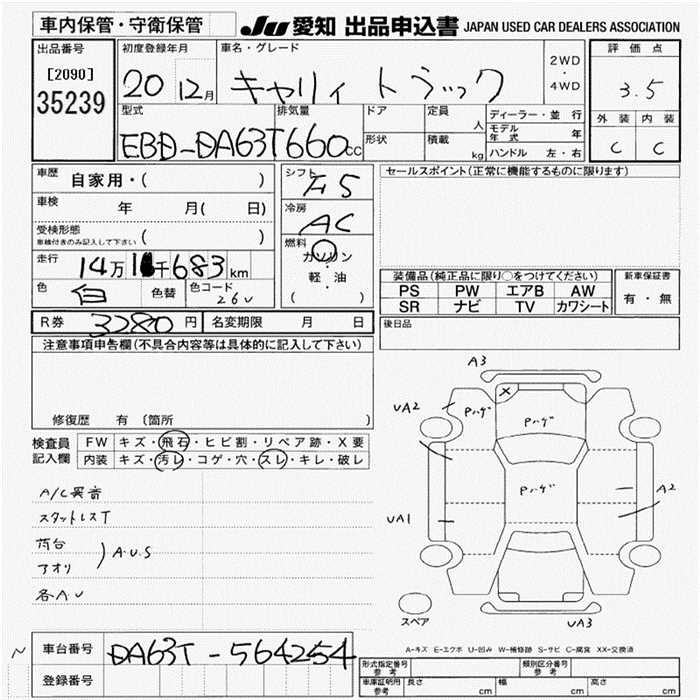 車内保管・守衛保管 JU 愛知 出品申込書 JAPAN USED CAR DEALERS ASSOCIATION
出品番号
[2090]
35239
初度登録年月
20 12月
車名・グレード
キャリィ トラック
2WD
・
4WD
評価点
3.5
外装 内装
C C
型式
EBD-DA63T
排気量
660cc
ドア
形状
定員
人
積載
kg
ディーラー・並行
モデル年式 年
ハンドル 左・右
車歴
自家用・( )
車検
年 月( 日)
受検形態
車検付きのみ記入して下さい ( )
走行
14万1千683km
色
白
色替
色コード
26U
シフト
F5
冷房
AC
燃料
ガソリン
・
軽・油
( )
セールスポイント(正常に機能するものに限ります)
装備品(純正品に限り○をつけてください)
PS PW エアB AW
SR ナビ TV カワシート
新車保証書
有・無
R券 3280円 名変期限 月 日
後日品
注意事項申告欄(不具合内容等は具体的に記入して下さい)
修復歴 有 〔箇所 〕
検査員記入欄
FW キズ・飛石・ヒビ割・リペア跡・X要
内装 キズ・汚レ・コゲ・穴・スレ・キレ・破レ
A/C異音
スタットレスT
荷台
アオリ
A.U.S
各AU
A3
UA2
Pハゲ
X
Pハゲ
Pハゲ
A2
UA1
スペア
UA3
A-キズ E-エクボ U-凹み W-補修跡 S-サビ C-腐食 XX-交換済
~ 車台番号 DA63T-564254
登録番号
形式指定番号
参考
類別区分番号
参考
車庫証明用
参考
長さ cm 幅 cm 高さ cm